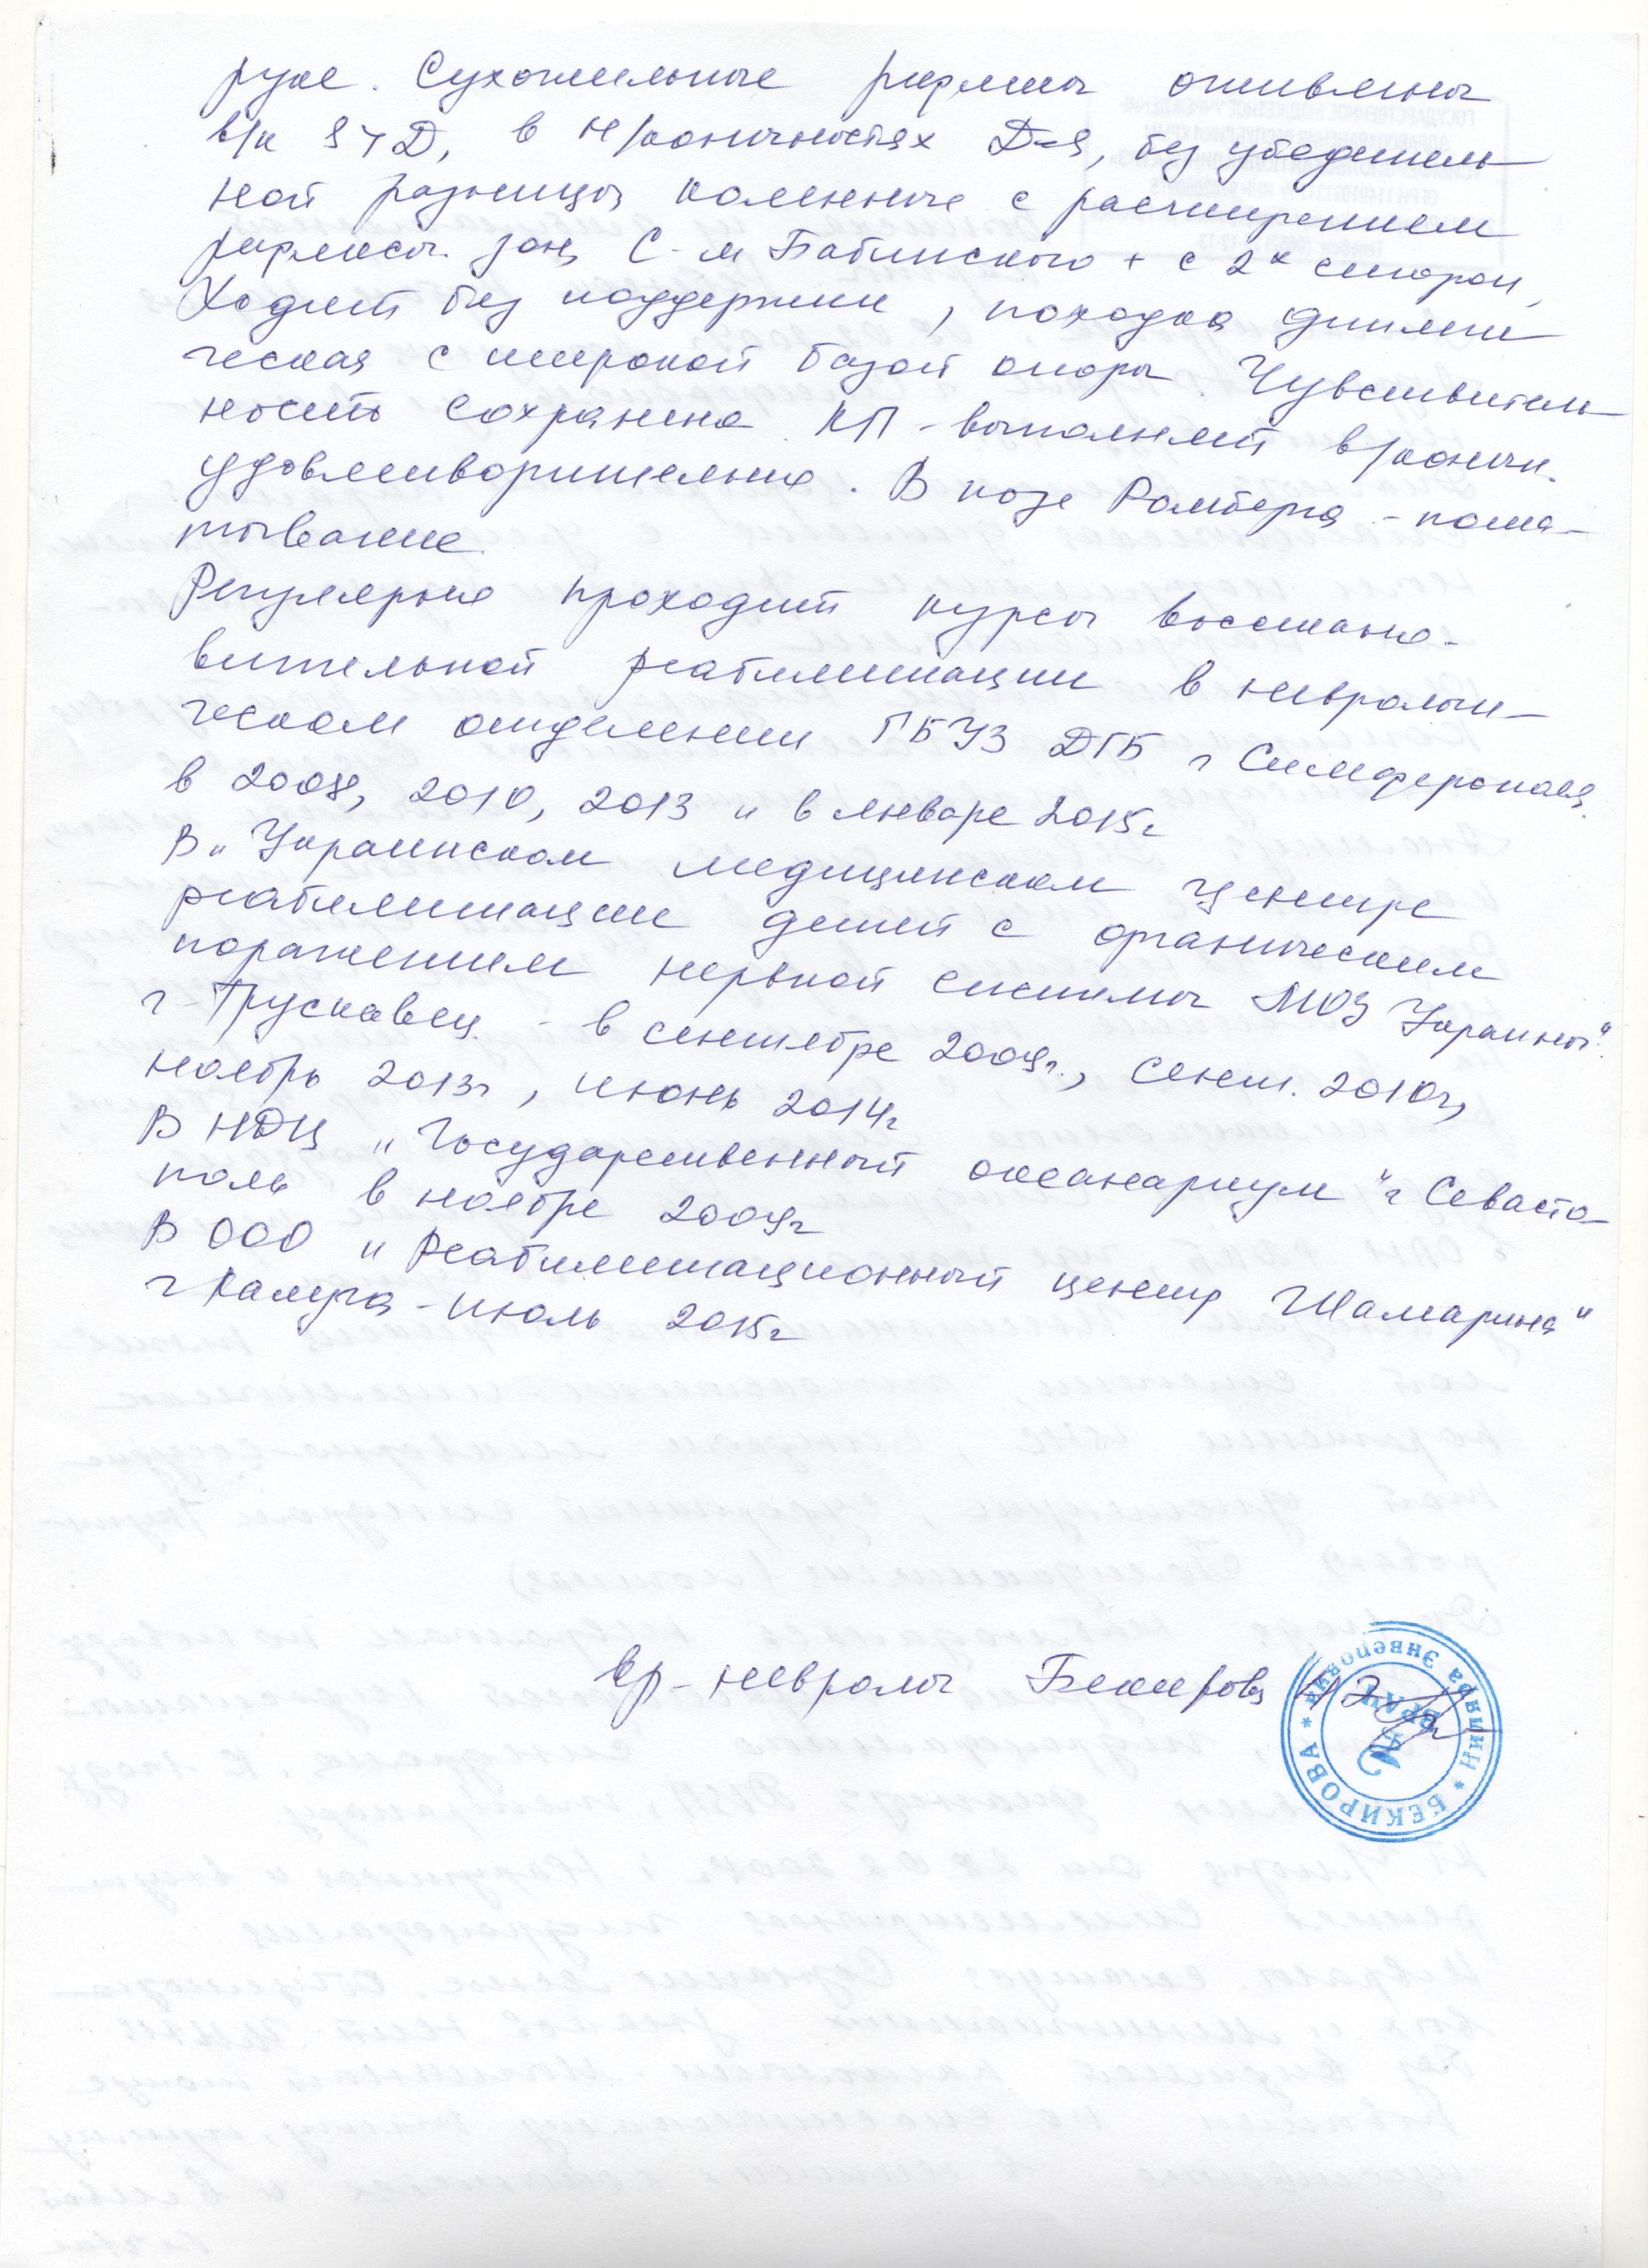 руке. Сухожильные рефлексы оживлены
в/к S>D, в н/конечностях D=S, без убедитель
ной разницы коленные с расширением
рефлексог. зон, С-м Бабинского + с 2х сторон,
Ходит без поддержки, походка
ческая с широкой базой опоры. Чувствитель
ность сохранена. КП - выполняет в/конечн.
удовлетворительно. В позе Ромберга - поша-
тывание.
Регулярно проходит курсы восстано-
вительной реабилитации в неврологи-
ческом отделении ГБУЗ ДГБ г Симферополя
в 2008, 2010, 2013 и в январе 2015г
В „Украинском медицинском центре
реабилитации детей с органическим
поражением нервной системы МОЗ Украины"
г-Трускавец - в сентябре 2009г., сент. 2010г,
ноябрь 2013г, июнь 2014г
В НДЦ „Государственный океанариум" г Севасто-
поль в ноябре 2009г
В ООО „Реабилитационный центр Шамарина"
г Калуга - июль 2015г
Вр-невролог Бекирова Н Э
БЕКИРОВА * Ниняра Энверовна *
ВРАЧ